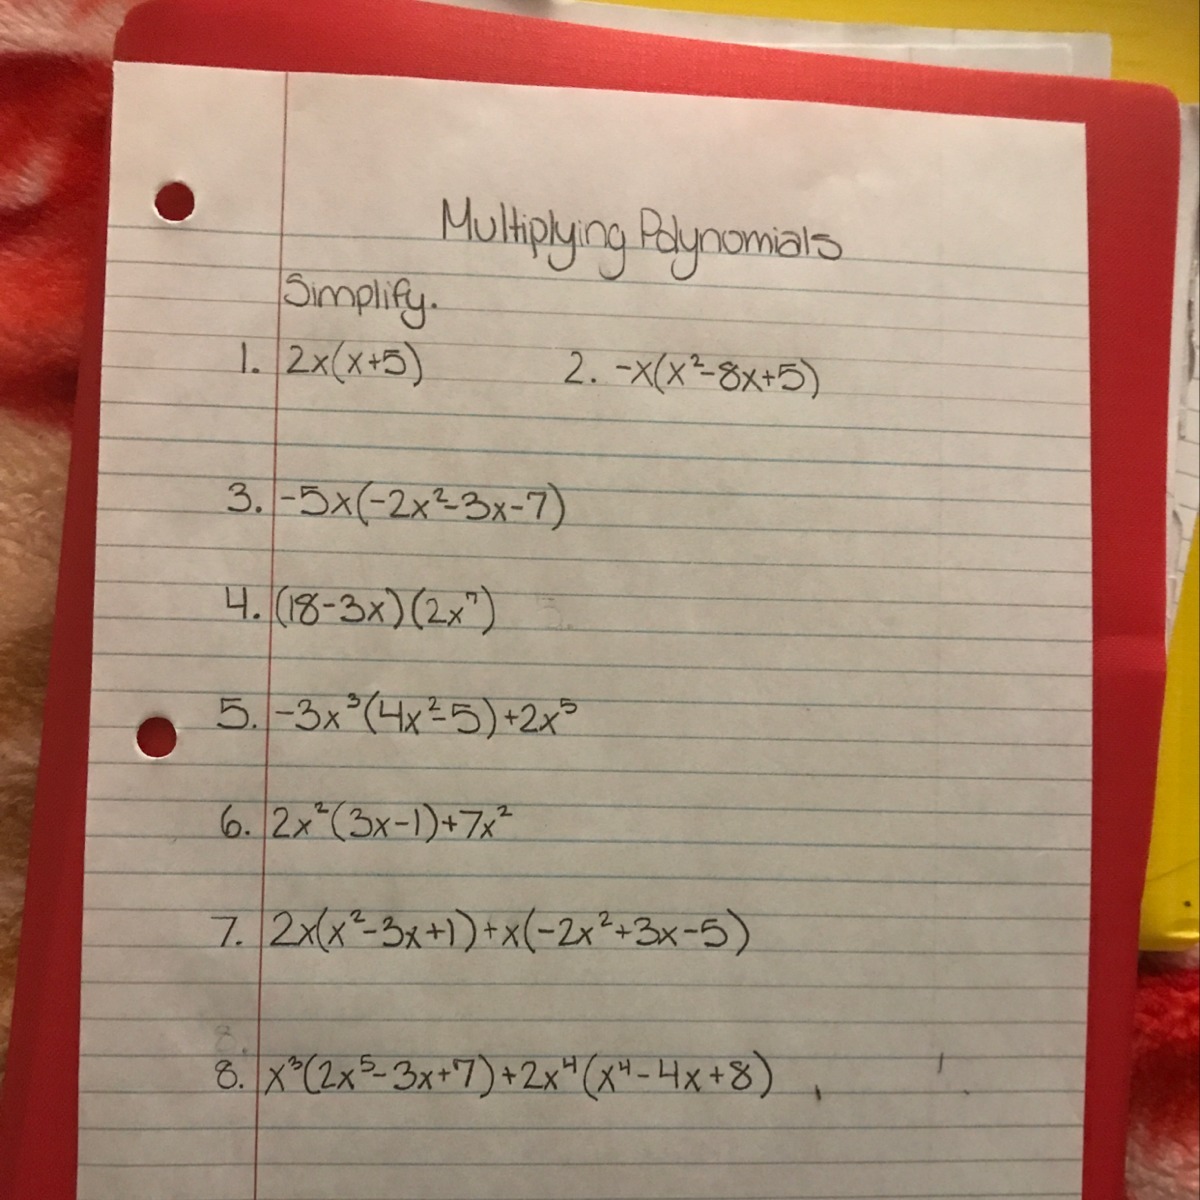 Multiplying Polynomials
Simplify.
1. 2x(x+5) 2. -x(x²-8x+5)
3. -5x(-2x²-3x-7)
4. (18-3x)(2x⁷)
5. -3x³(4x²-5)+2x⁵
6. 2x²(3x-1)+7x²
7. 2x(x²-3x+1)+x(-2x²+3x-5)
8. x³(2x⁵-3x+7)+2x⁴(x⁴-4x+8)